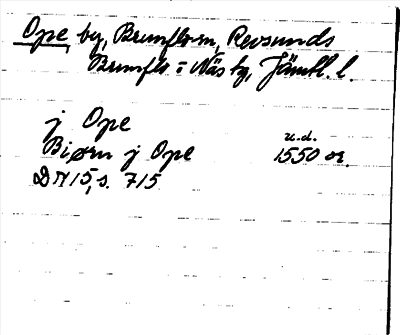 Ope by, Brunflo sn, Revsunds
Brunflo - Näs tg, Jämtl. l.
j Ope
u.d.
Biørn j Ope 1550 or.
DN 15, s. 715